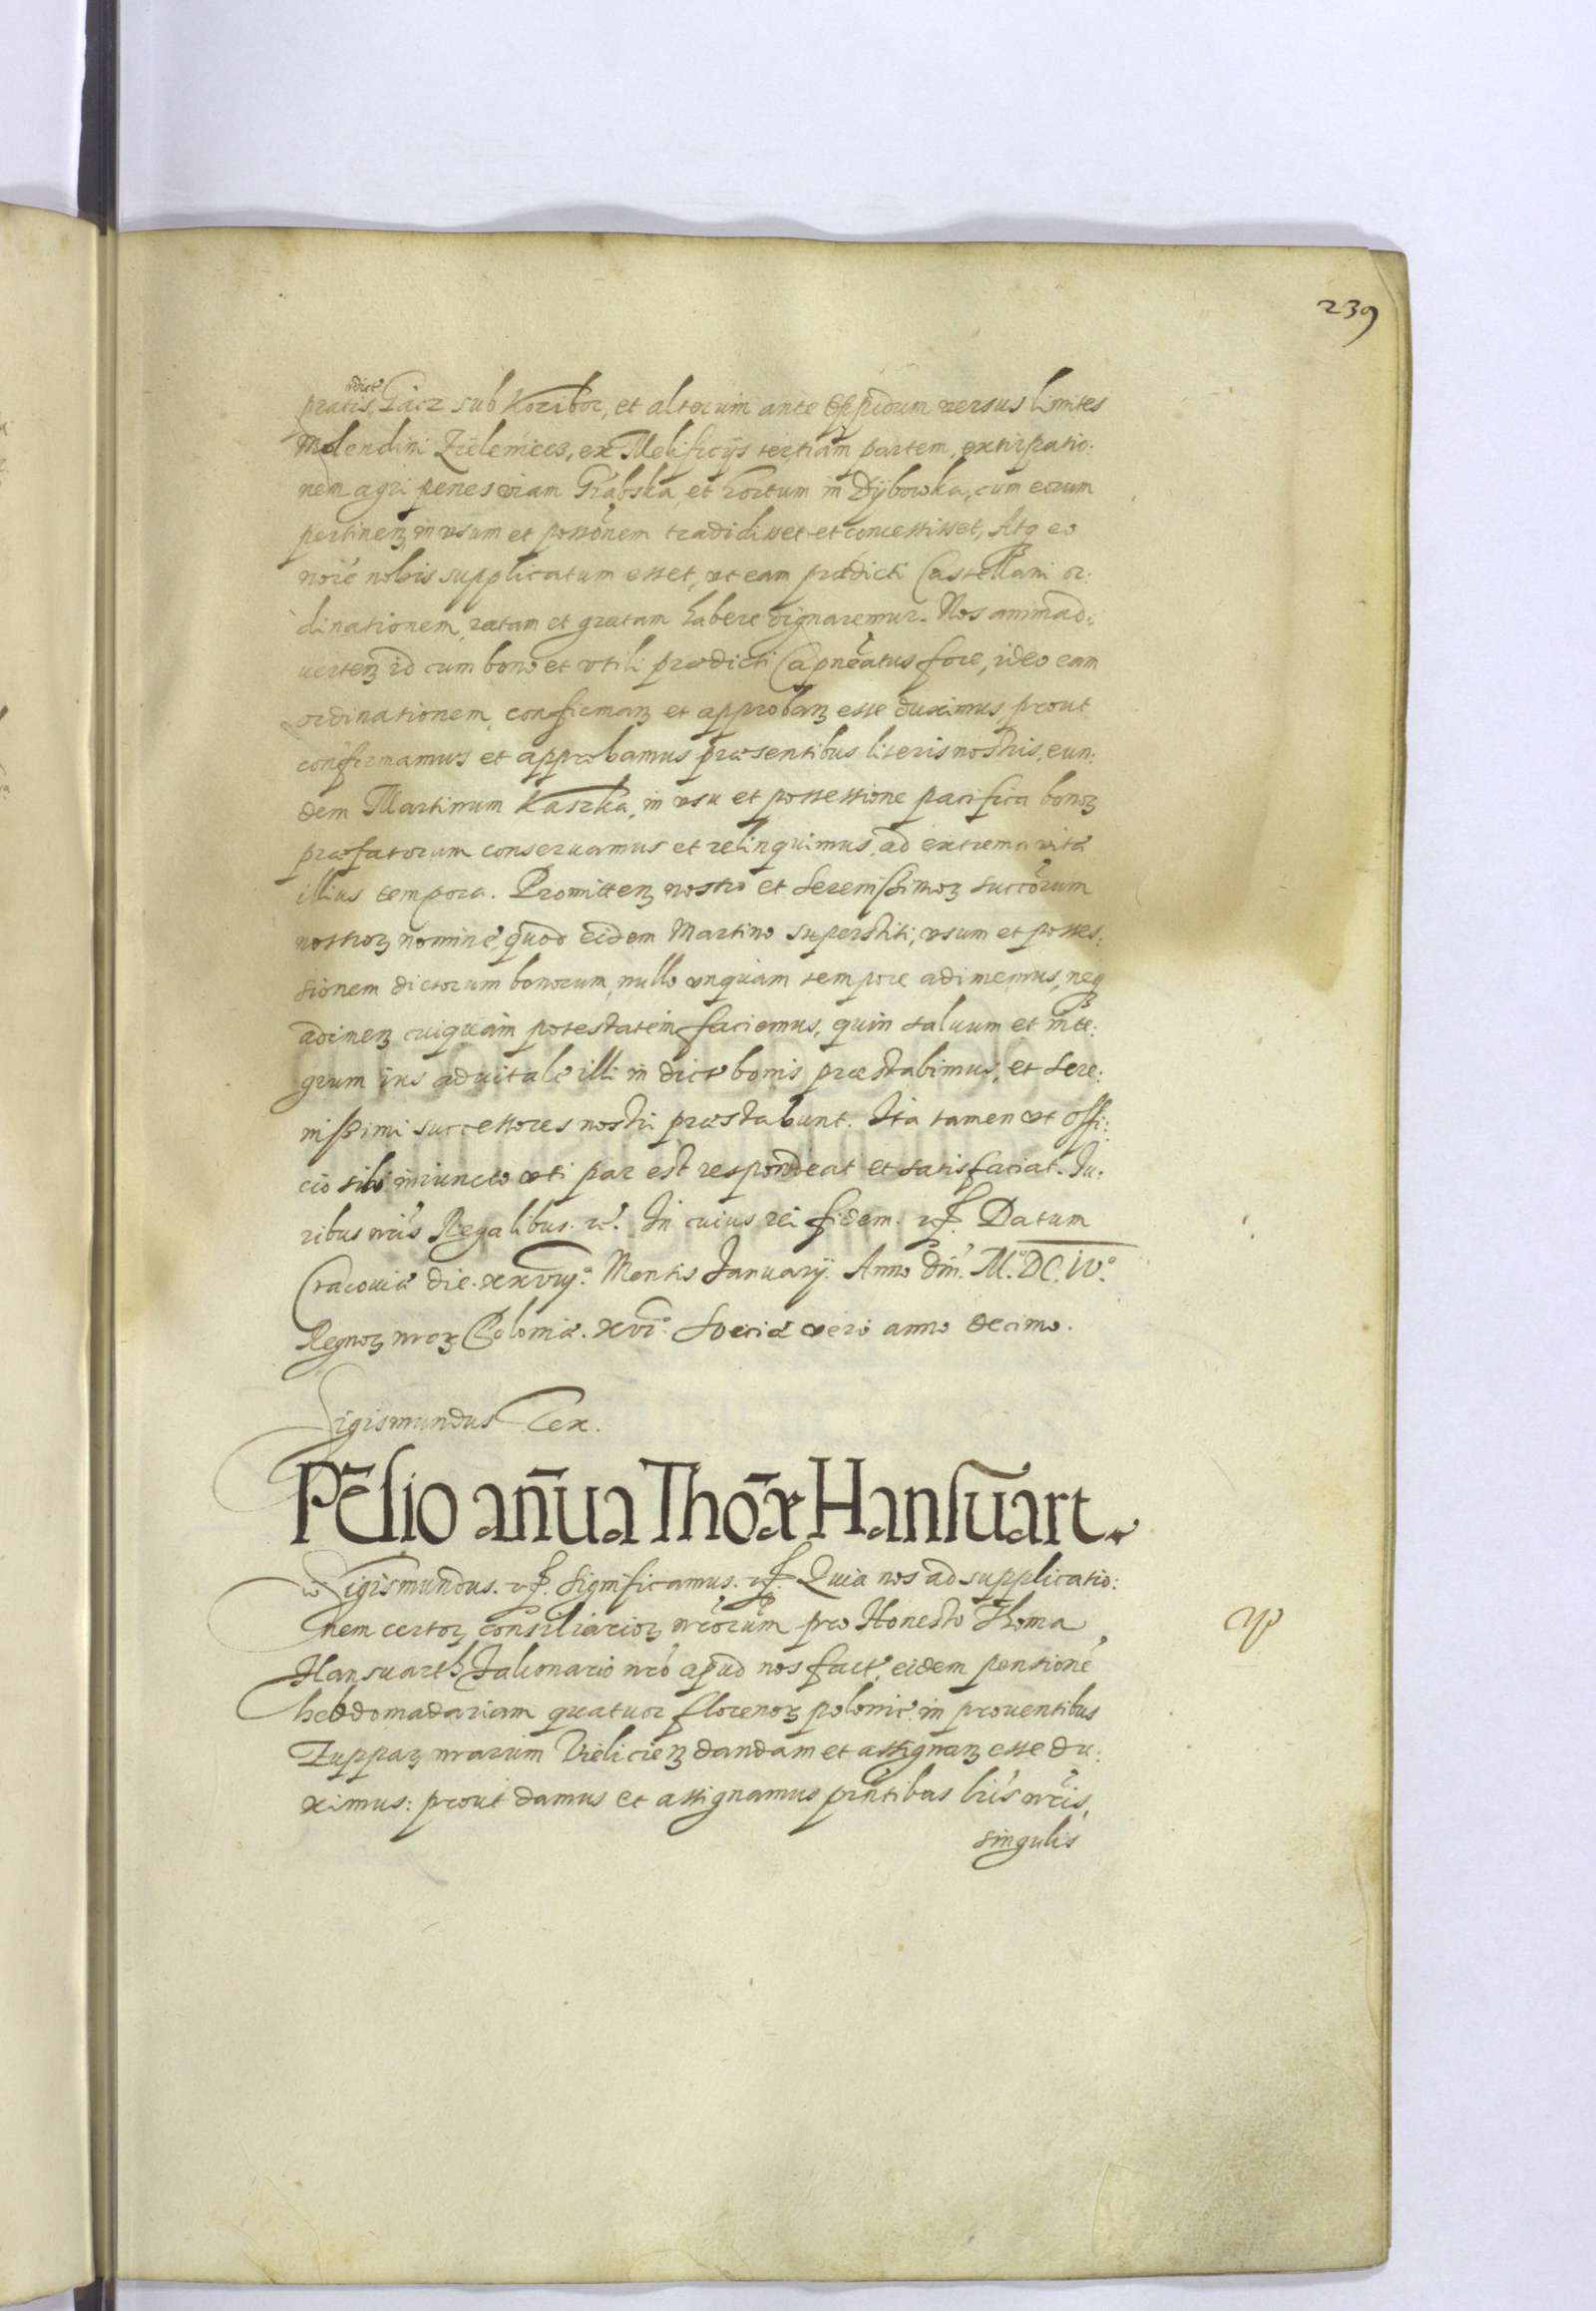 239
dict
pratis, Gacz sub Koribor, et alterum ante oppidum versus limites
Molendini Zielemices, ex Melificijs tertiam partem, extirpatio:
nem agri penes viam Grabska, et hortum in Dÿbowka, cum eorum
pertineñ in usum et possönem tradidisset et concessisset, Atq eo
noiẽ nobis supplicatum esset, vt eam prædicti Castellani or:
dinationem, ratam et gratam habere dignaremur. Nos animad:
uerteñ id cum bono et vtili prædicti Capneatus fore, ideo eam
ordinationem, confirmañ et approbañ esse duximus, prout
confirmamus et approbamus præsentibus literis nostris, eun:
dem Martinum Kaszka, in vsu et possessione pacifica bonoꝝ
præfatorum conseruamus et relinquimus, ad extrema vitæ
illius tempora. Promitteñ nostro et Serenissimoꝝ succorum
nostroꝝ nomine, quod eidem Martino superstiti, vsum et posses:
sionem dictorum bonorum, nullo vnquam tempore adimemus, neq
adimeñ cuiquam potestatem faciemus, quin saluum et inte:
grum ius aduitale illi in dict bonis præstabimus, et Sere:
nissimi successores nostri præstabunt. Ita tamen vt offi:
cio sibi iniuncto vti par est respondeat et satisfaciat. Iu:
ribus nris Regalibus. &. In cuius rei fidem. &. Datum
Cracouiæ die. xxviij.ª Mensis Ianuarij. Anno Dni. M.º DC. IV.º
Regnoꝝ nroꝝ Poloniæ. XVI.º Sueciæ vero anno decimo.
Sigismundus Rex.
Pēsio añua Thoæ Hansuart.
Sigismundus. &. Significamus. &. Quia nos ad supplicatio:
nem certoꝝ consiliarioꝝ nrorum pro Honesto Thoma
Hansuarth Falconario nro apud nos fact, eidem pensione
hebdomadariam quatuor florenoꝝ polonic in prouentibus
Zuppaꝝ nrarum Vielicień dandam et assignañ esse du:
ximus: prout damus et assignamus pñtibus lris nris,
singulis